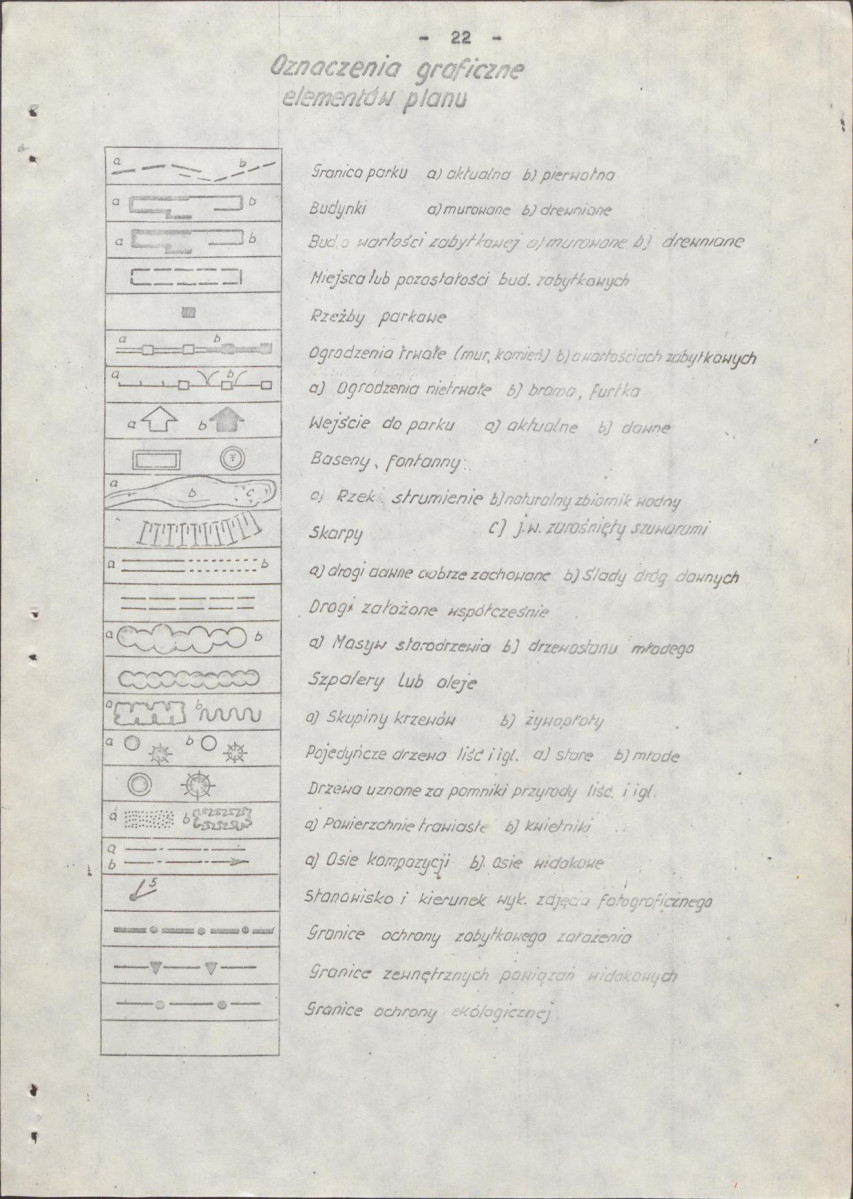 - 22 -
Oznaczenia graficzne
elementów planu
a b Granica parku a) aktualna b) pierwotna
a b Budynki a) murowane b) drewniane
a b Bud. o wartości zabytkowej a) murowane b) drewniane
Miejsca lub pozostałości bud. zabytkowych
Rzeźby parkowe
a b Ogrodzenia trwałe (mur, kamień) b) o wartościach zabytkowych
a b a) Ogrodzenia nietrwałe b) brama, furtka
a b Wejście do parku a) aktualne b) dawne
Baseny, fontanny
a b c a) Rzek, strumienie b) naturalny zbiornik wodny
Skarpy c) j.w. zarośnięty szuwarami
a b a) drogi dawne dobrze zachowane b) Ślady dróg dawnych
Drogi założone współcześnie
a b a) Masyw starodrzewia b) drzewostanu młodego
Szpalery lub aleje
a b a) Skupiny krzewów b) żywopłoty
a b Pojedyńcze drzewa liść i igl. a) stare b) młode
Drzewa uznane za pomniki przyrody liść. i igl.
a b a) Powierzchnie trawiaste b) kwietniki
a b a) Osie kompozycji b). osie widokowe
5 Stanowisko i kierunek wyk. zdjęcia fotograficznego
Granice ochrony zabytkowego założenia
Granice zewnętrznych powiązań widokowych
Granice ochrony ekologicznej